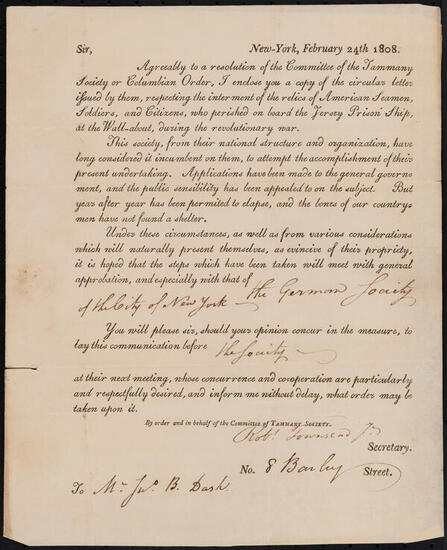 Sir, New-York, February 24th 1808.
Agreeably to a resolution of the Committee of the Tammany
Society or Columbian Order, I enclose you a copy of the circular letter
issued by them, respecting the interment of the relics of American Seamen,
Soldiers, and Citizens, who perished on board the Jersey Prison Ship,
at the Wall-about, during the revolutionary war.
This society, from their national structure and organization, have
long considered it incumbent on them, to attempt the accomplishment of their
present undertaking. Applications have been made to the general govern-
ment, and the public sensibility has been appealed to on the subject. But
year after year has been permited to elapse, and the bones of our country-
men have not found a shelter.
Under these circumstances, as well as from various considerations
which will naturally present themselves, as evincive of their propriety,
it is hoped that the steps which have been taken will meet with general
approbation, and especially with that of the German Society
of the City of New York
You will please sir, should your opinion concur in the measure, to
lay this communication before the Society
at their next meeting, whose concurrence and co-operation are particularly
and respectfully desired, and inform me without delay, what order may be
taken upon it.
By order and in behalf of the Committee of TAMMANY SOCIETY.
Robt. Townsend Jr.
Secretary.
No. 8 Barley Street.
To Mr. Jno. B. Dash